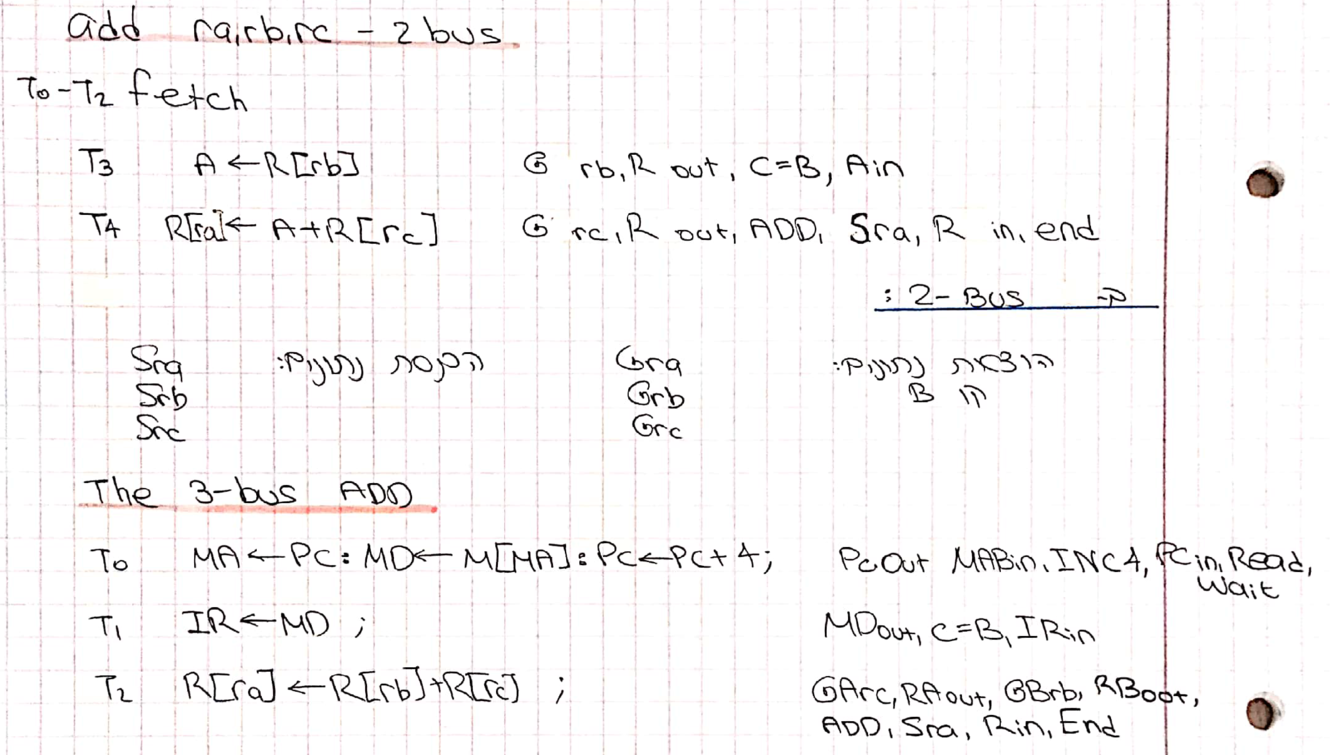 add ra,rb,rc - 2 bus
T0-T2 fetch
T3 A←R[rb] Grb, R out, C=B, Ain
T4 R[ra]← A+R[rc] Grc, R out, ADD, Sra, R in, end
ב- 2-Bus :
הוצאת נתונים: Gra הכנסת נתונים: Sra
קו B Grb Srb
Grc Src
The 3-bus ADD
T0 MA←PC: MD← M[MA]: PC←PC+4; PcOut MABin, INC4, PCin, Read,
Wait
T1 IR←MD ; MDout, C=B, IRin
T2 R[ra]←R[rb]+R[rc] ; GArc, RAout, GBrb, RBout,
ADD, Sra, Rin, End